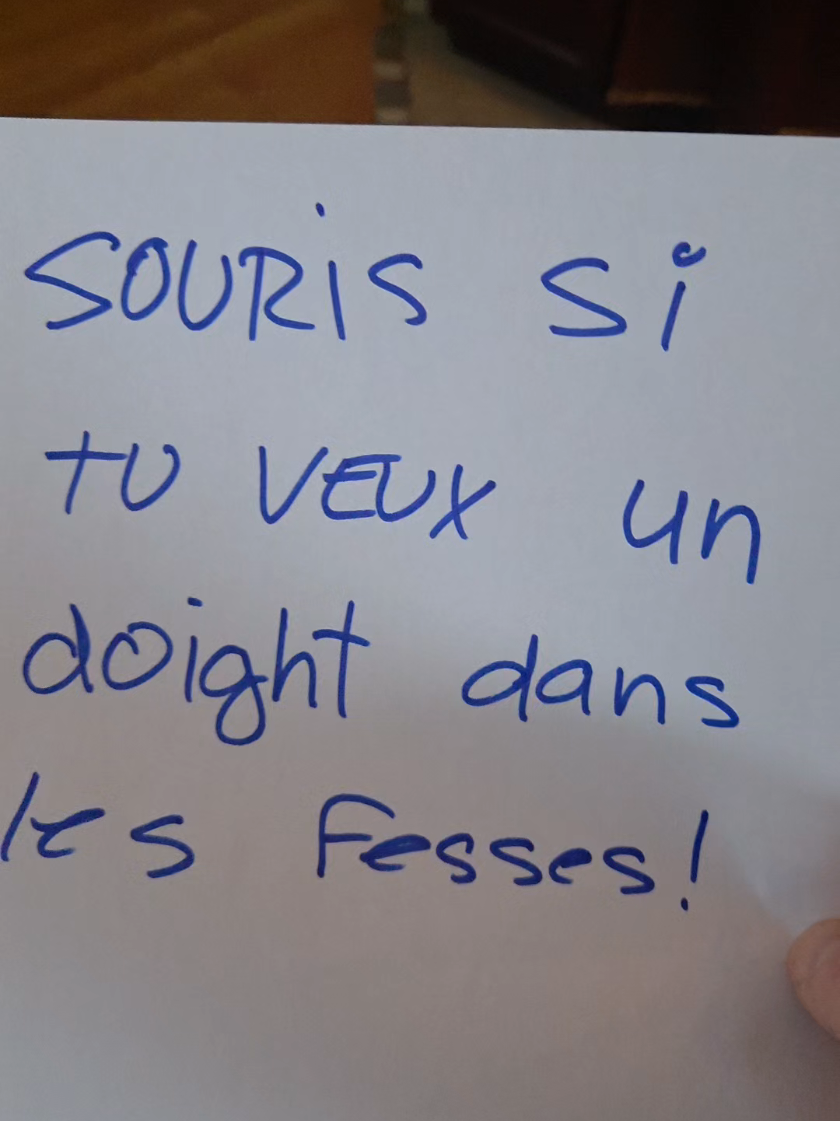 SOURiS Si
TU VEUX un
doight dans
les Fesses!